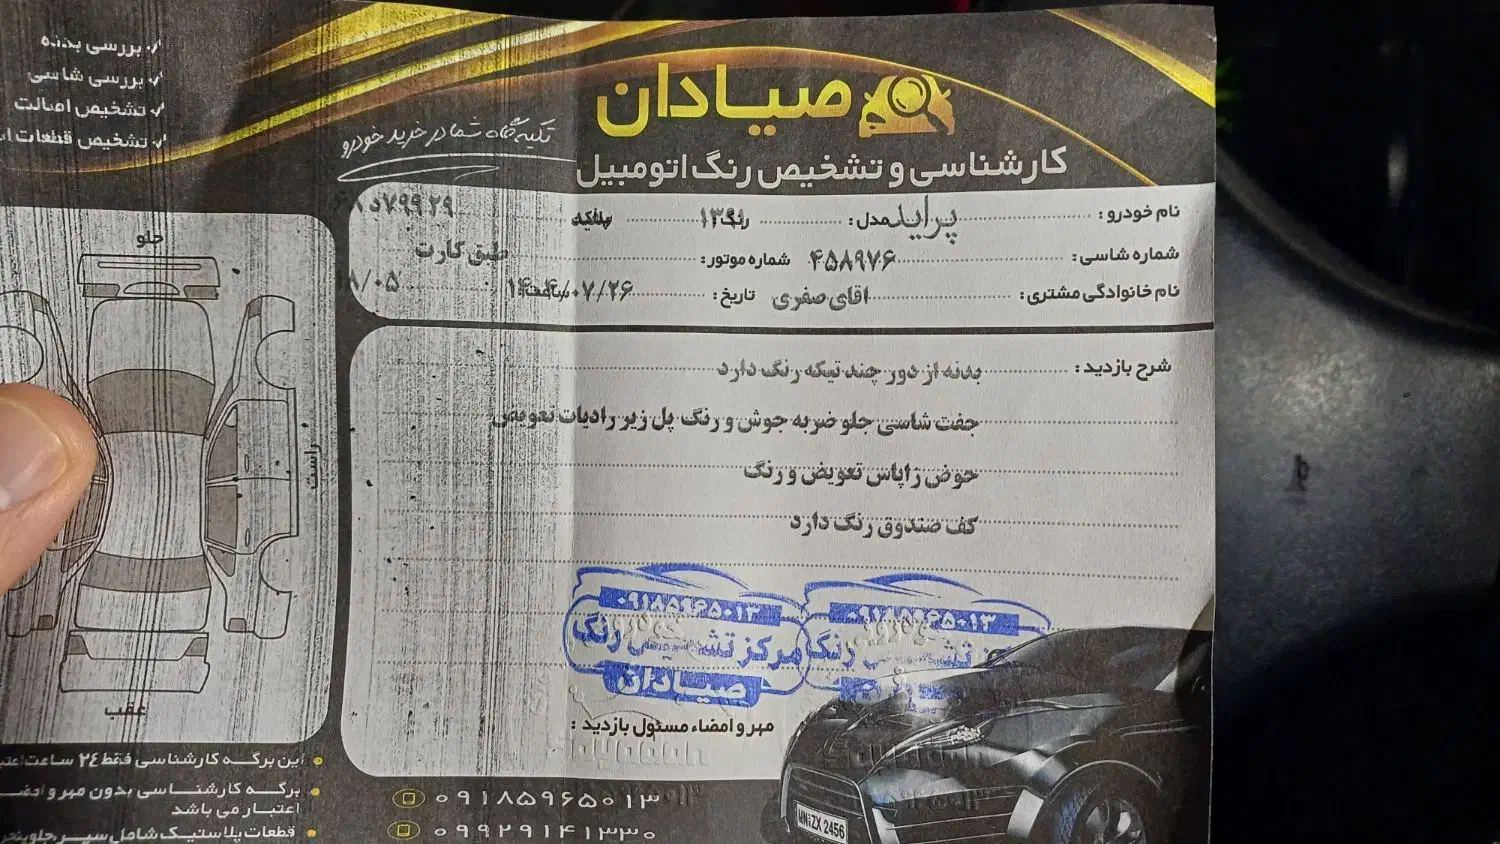 صیادان
کارشناسی و تشخیص رنگ اتومبیل
تکیه گاه شما در خرید خودرو
✓ بررسی بدنه
✓ بررسی شاسی
✓ تشخیص اصالت
✓ تشخیص قطعات
نام خودرو : پراید مدل : ۱۳۹۱ رنگ پلاک ۶۸۵۷۹۹۲۹
شماره شاسی : ۴۵۸۹۷۶ شماره موتور : طبق کارت
نام خانوادگی مشتری : اقای صفری تاریخ : ۰۷/۲۶ ساعت ۱۸/۰۵
شرح بازدید : بدنه از دور چند تیکه رنگ دارد
جفت شاسی جلو ضربه جوش و رنگ پل زیر رادیات تعویض
حوض زاپاس تعویض و رنگ
کف صندوق رنگ دارد
۰۹۱۸۵۹۶۵۰۱۳
مرکز تشخیص رنگ
صیادان
۰۹۱۸۵۹۶۵۰۱۳
تشخیص رنگ
مهر و امضاء مسئول بازدید :
Sayadan
Sayadan
۰۹۱۸۵۹۶۵۰۱۳
۰۹۹۲۹۱۴۱۳۳۰
MN·ZX 2456
جلو
راست
عقب
این برگه کارشناسی فقط ۲٤ ساعت
برگه کارشناسی بدون مهر و
اعتبار می باشد
قطعات پلاستیک شامل سپر،